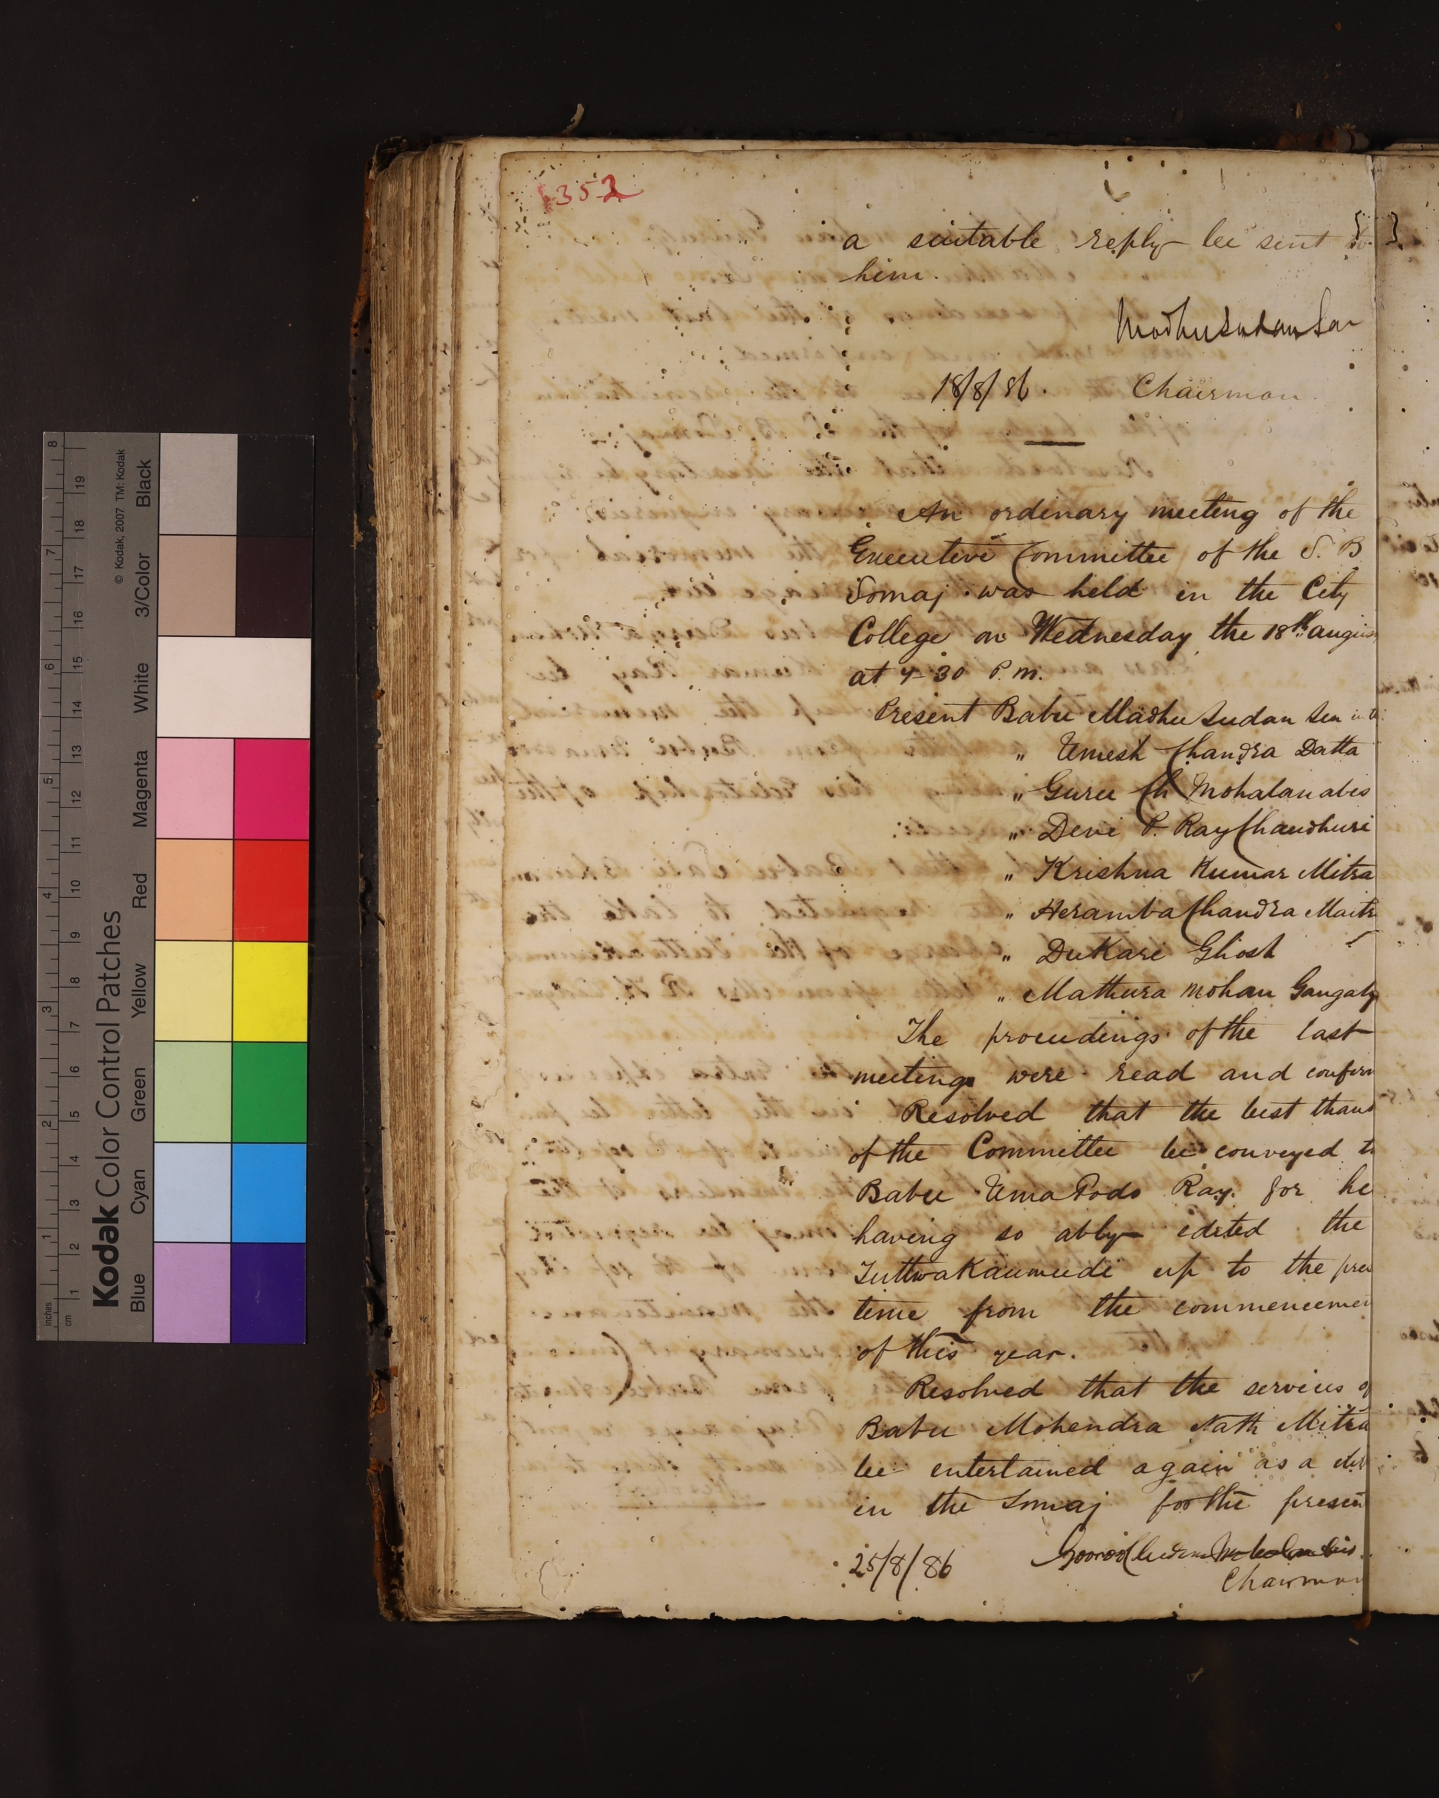 352
a suitable reply be sent to
him.
Modhu Sudan Sen
18/8/86. Chairman.
An ordinary meeting of the
Executive Committee of the S. B
Somaj was held in the City
College on Wednesday, the 18th augus
at 4-30 P.M.
Present Babu Madhu Sudan Sen in t
" Umesh Chandra Datta
" Guru Ch Mohalanabis
" Devi P. Ray Chaudhuri
" Krishna Kumar Mitra
" Heramba Chandra Maitr
" Dukari Ghosh
" Mathura Mohan Gangaly
The proceedings of the last
meetings were read and confirm
Resolved that the best thank
of the Committee be conveyed to
Babu Uma Podo Ray for he
having so ably edited the
Tuttwa Kaumudi up to the pres
time from the commencemen
of this year.
Resolved that the services of
Babu Mohendra Nath Mitra
be entertained again as a
in the Somaj for the presen
25/8/86 Gooroo Churn Mohalanobis.
Chairman
Kodak Color Control Patches
© Kodak, 2007 TM: Kodak
Blue Cyan Green Yellow Red Magenta White 3/Color Black
inches 1 2 3 4 5 6 7 8
cm 1 2 3 4 5 6 7 8 9 10 11 12 13 14 15 16 17 18 19